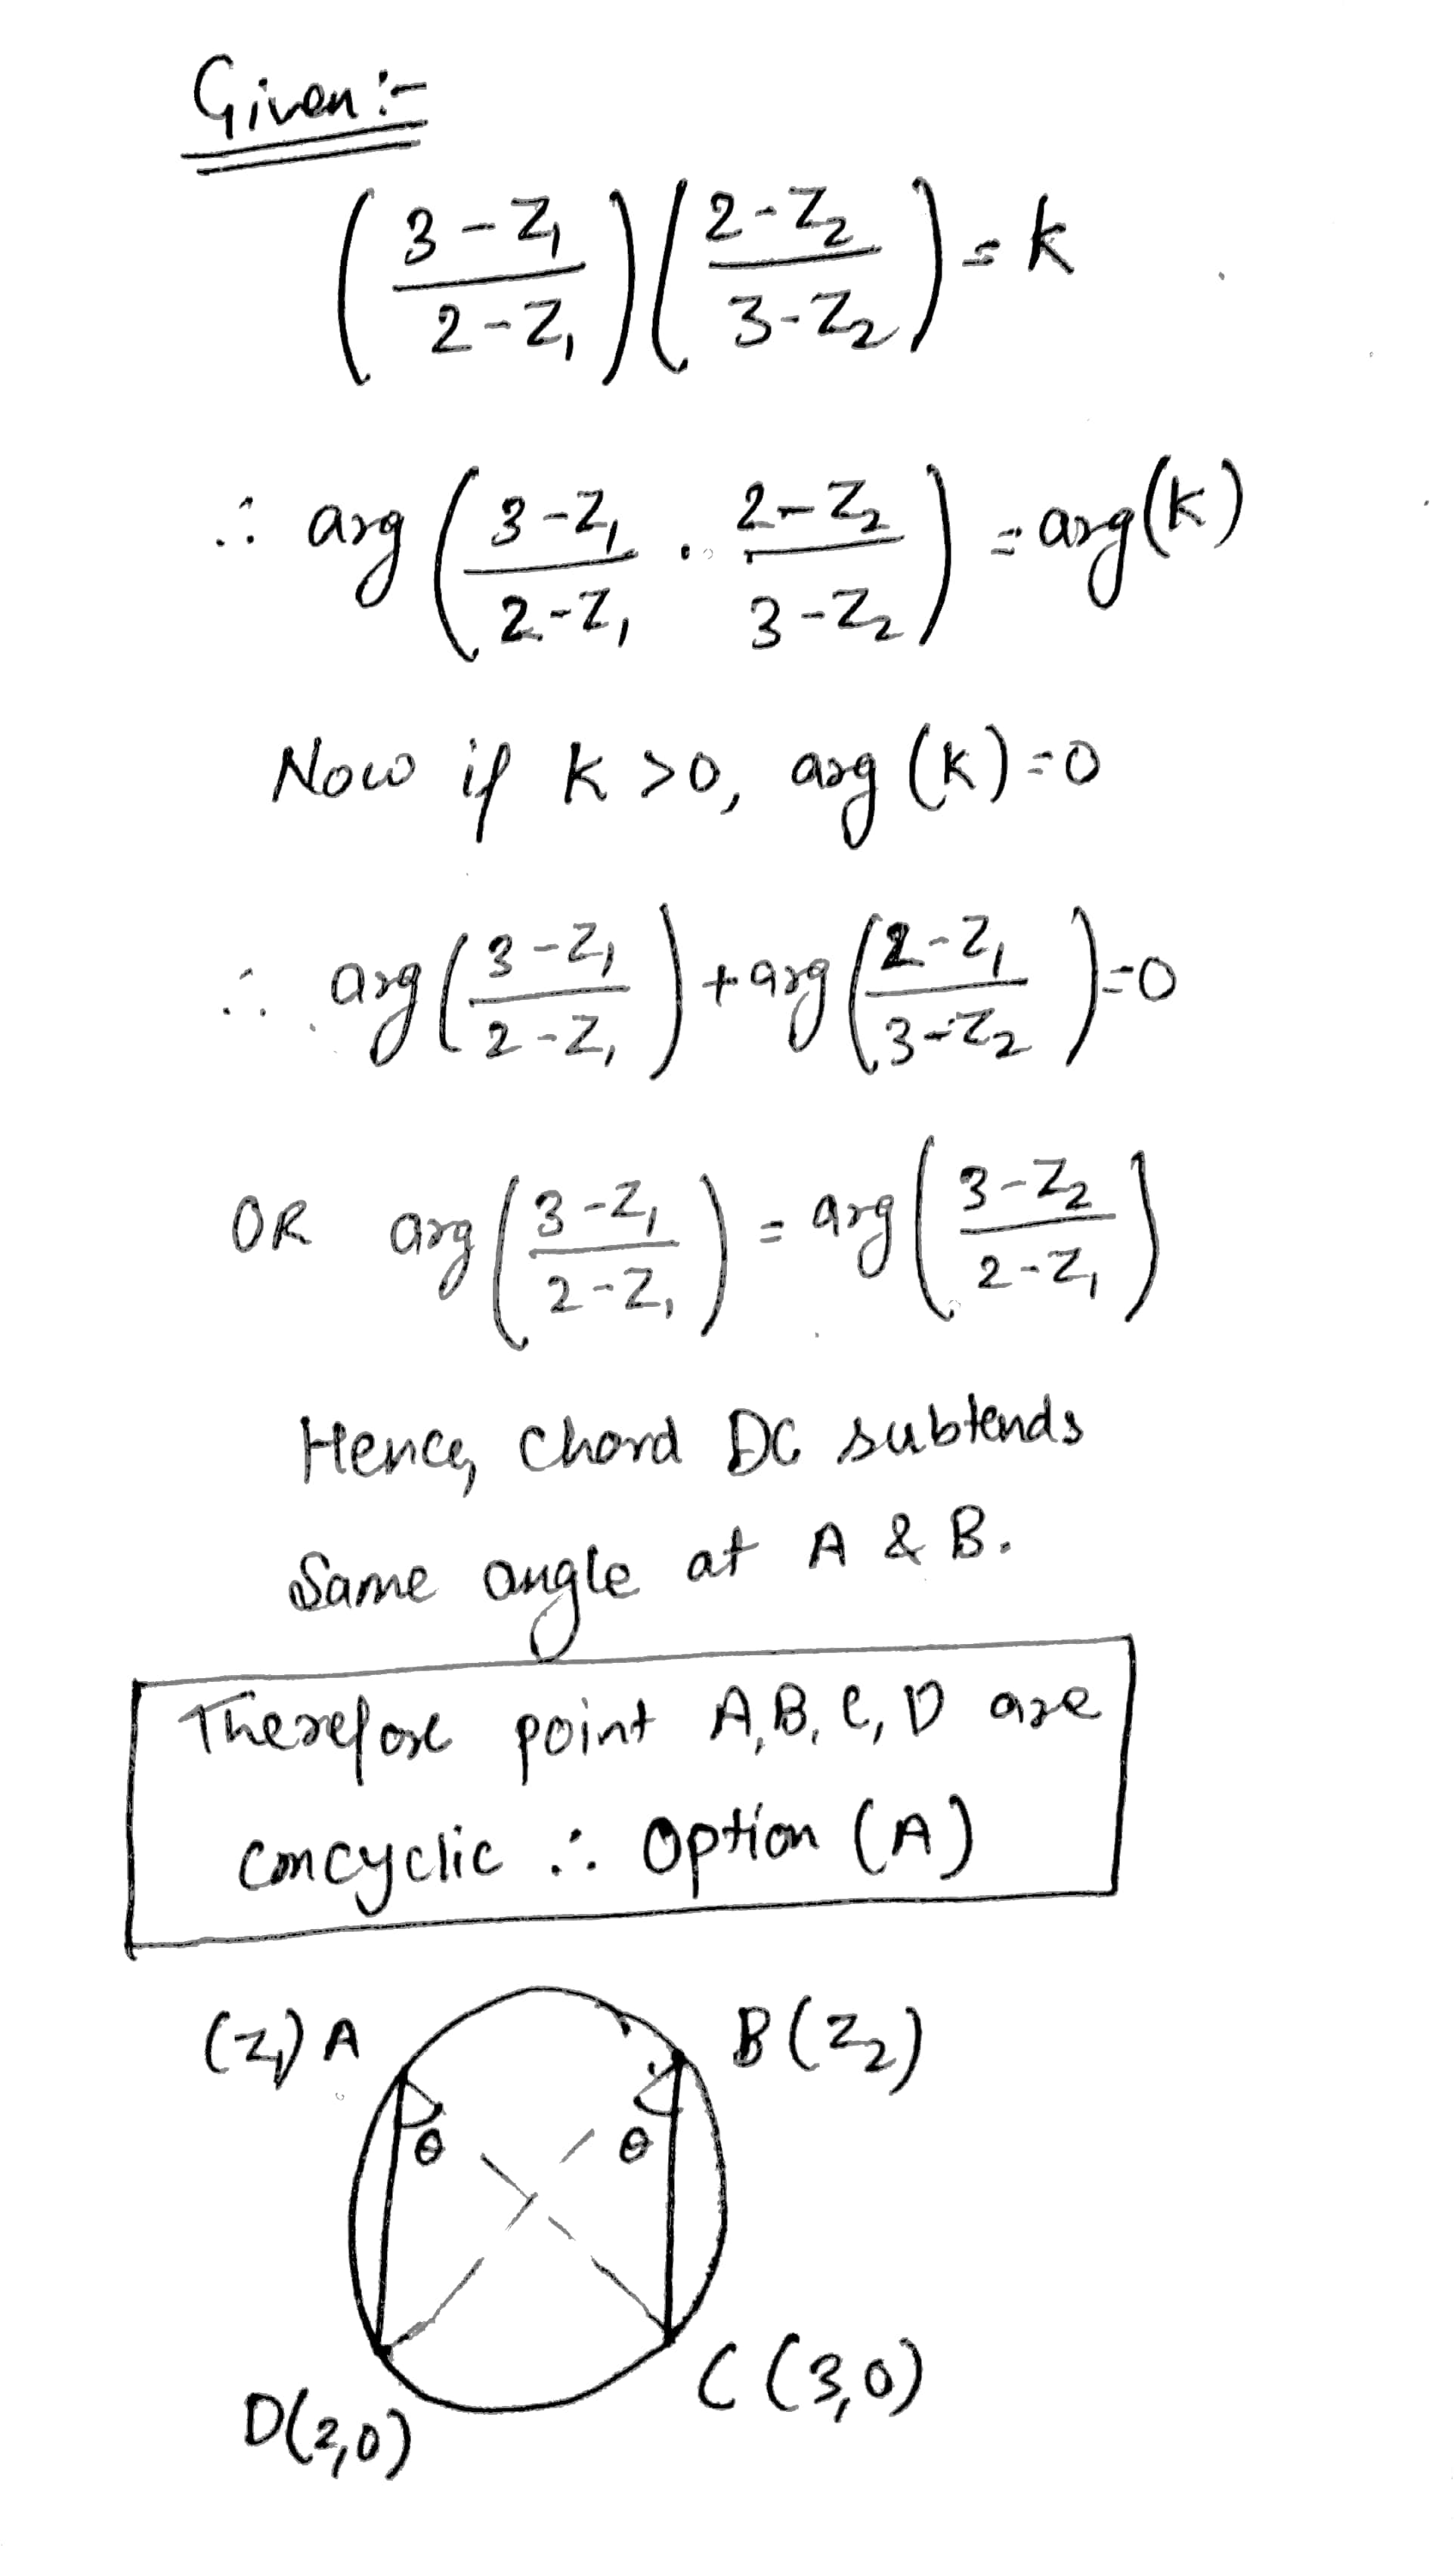 Given :-
(3-Z₁ / 2-Z₁) (2-Z₂ / 3-Z₂) = k
∴ arg (3-Z₁ / 2-Z₁ . 2-Z₂ / 3-Z₂) = arg(k)
Now if k >0, arg (k) = 0
∴ arg (3-Z₁ / 2-Z₁) + arg (2-Z₁ / 3-Z₂) = 0
OR arg (3-Z₁ / 2-Z₁) = arg (3-Z₂ / 2-Z₁)
Hence, chord DC subtends
Same angle at A & B.
Therefore point A, B, C, D are
concyclic ∴ Option (A)
(Z₁) A B (Z₂)
θ θ
D(2,0) C (3,0)